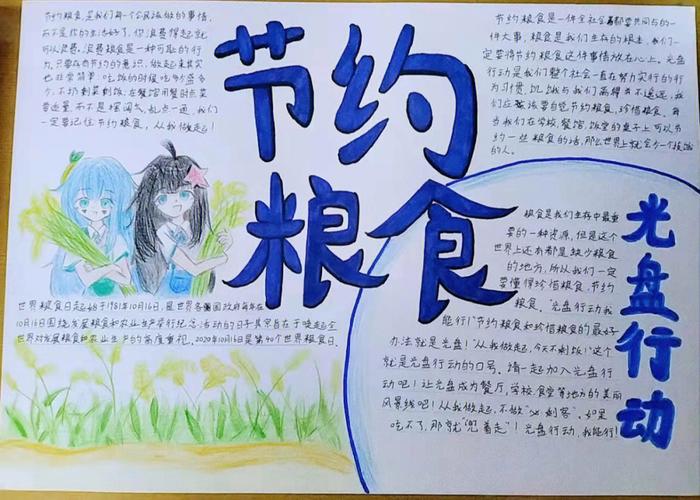 节约粮食
节约粮食,是我们每个公民该做的事情,
而不是你的生活好了,你浪费得起就
可以浪费.浪费粮食是一种可耻的行
为.只要存有节约的意识,做起来其实
也非常简单:吃饭的时候吃多少盛多
少,不扔剩菜剩饭,在餐馆用餐时点菜
要适量,而不是摆阔气,乱点一通,我们
一定要记住节约粮食,从我做起!
节约粮食是一件全社会都要共同与的一
件大事,粮食是我们生存的根本,我们一
定要将节约粮食这件事情放在心上。光盘
行动是我们整个社会一直在努力实行的行
为习惯,
我们
应该要自觉节约粮食,珍惜粮食。每
当我们在学校,餐馆,饭堂的桌子上可以节
约一些粮食的话,那么世界上就会少一个挨饿
的人。
世界粮食日起始于1981年10月16日,是世界各国政府每年在
10月16日围绕发展粮食和农业生产举行纪念活动的日子其宗旨在于唤起全
世界对发展粮食和农业生产的高度重视。2020年10月16日是第40个世界粮食日.
光盘行动
粮食是我们生存中最重
要的一种资源,但是这个
世界上还有都是缺少粮食
的地方,所以我们一定
要懂得珍惜粮食,节约
粮食。"光盘行动我
能行!"节约粮食和珍惜粮食的最好
办法就是光盘!"从我做起,今天不剩饭!"这个
就是光盘行动的口号。请一起加入光盘行
动吧!让光盘成为餐厅,学校,食堂等地方的美丽
风景线吧!从我做起,不做"必剩客",如果
吃不了,那就"兜着走"!光盘行动,我能行!